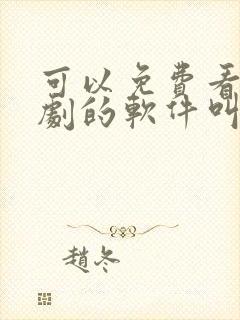 可以免費看
劇的軟件叫
趙冬